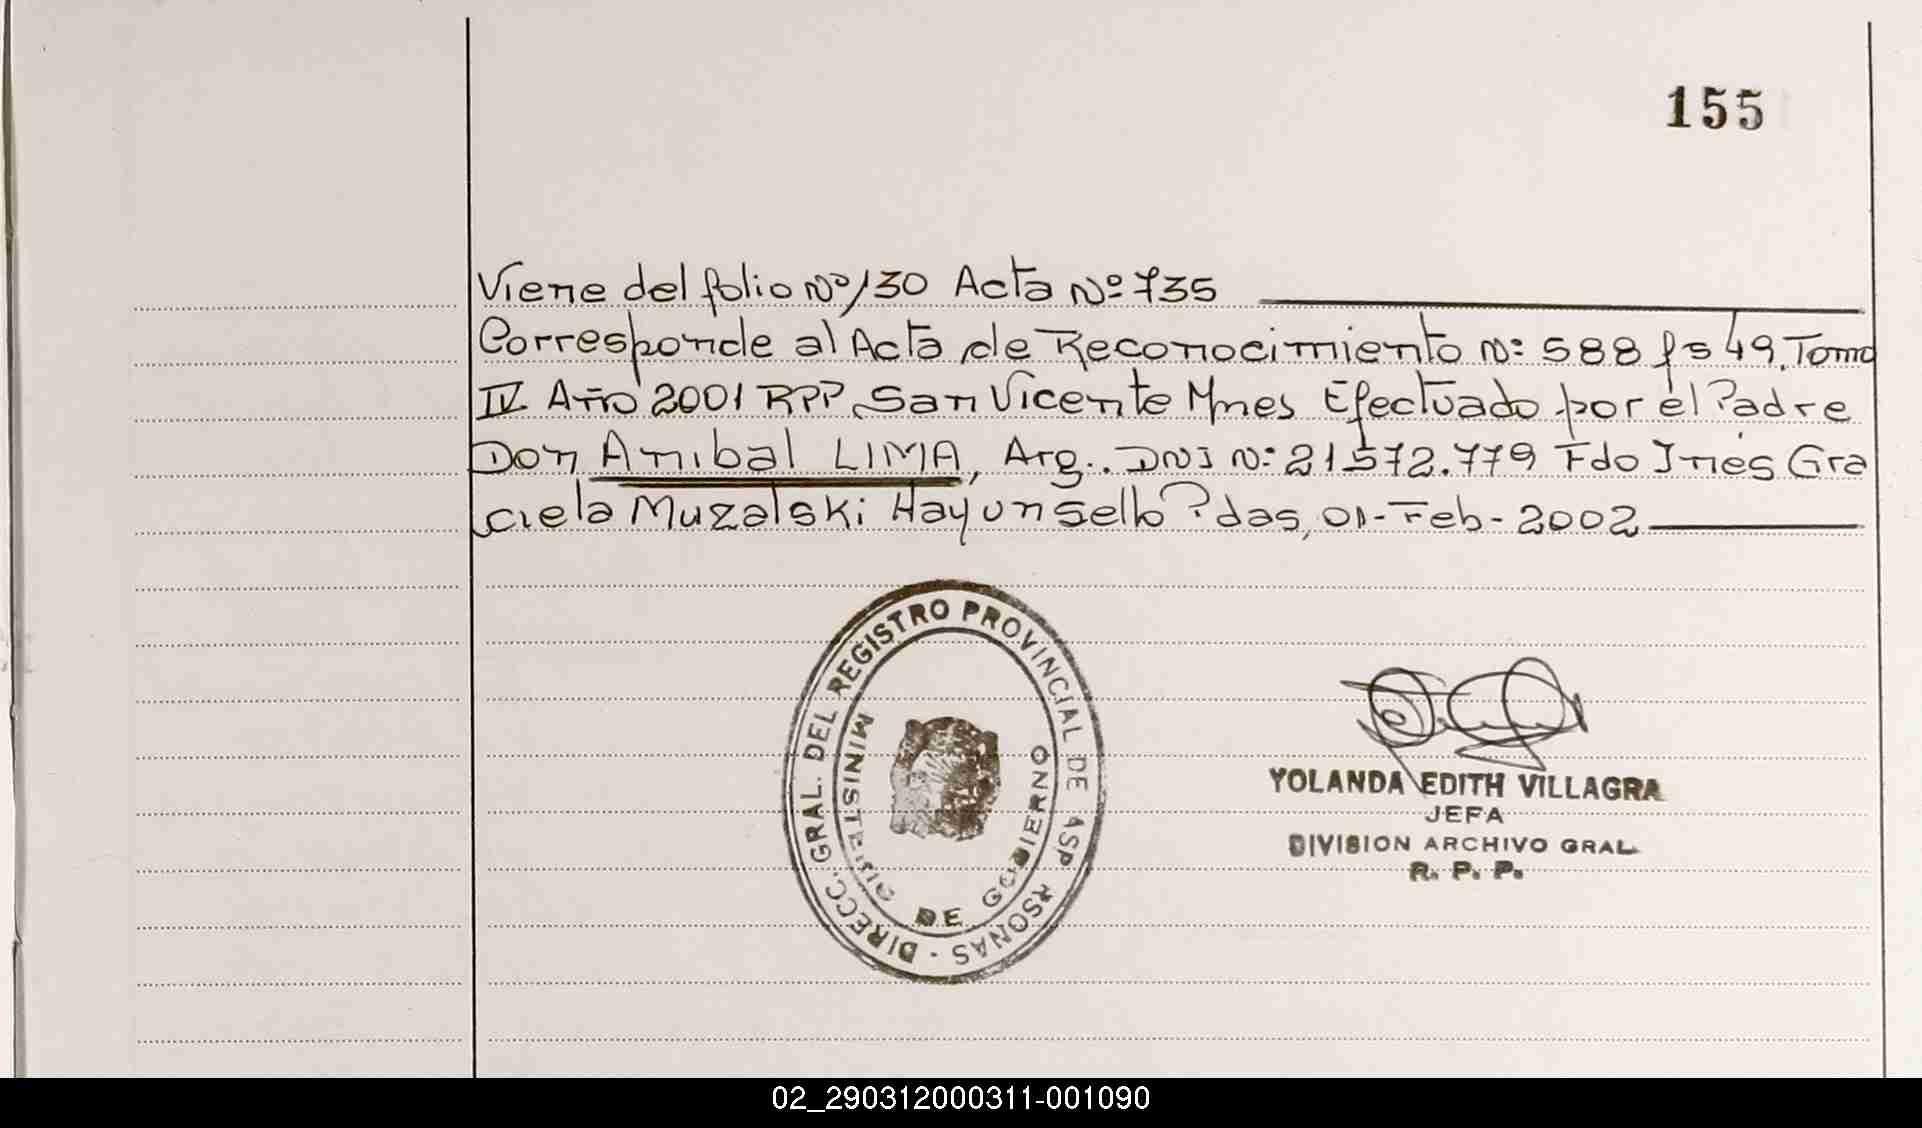 155
Viene del folio Nº 130 Acta Nº 735
Corresponde al Acta de Reconocimiento Nº 588 fs 49. Tomo
IV Año 2001 RPP San Vicente Mnes Efectuado por el Padre
Don Anibal LIMA, Arg.. DNI Nº 21572.779 Fdo Inés Gra
ciela Muzalski Hay un sello Pdas, 01-Feb-2002
DIRECC. GRAL. DEL REGISTRO PROVINCIAL DE
RSONAS -
MINISTERIO DE GOBIERNO
YOLANDA EDITH VILLAGRA
JEFA
DIVISION ARCHIVO GRAL.
R. P. P.
02_290312000311-001090